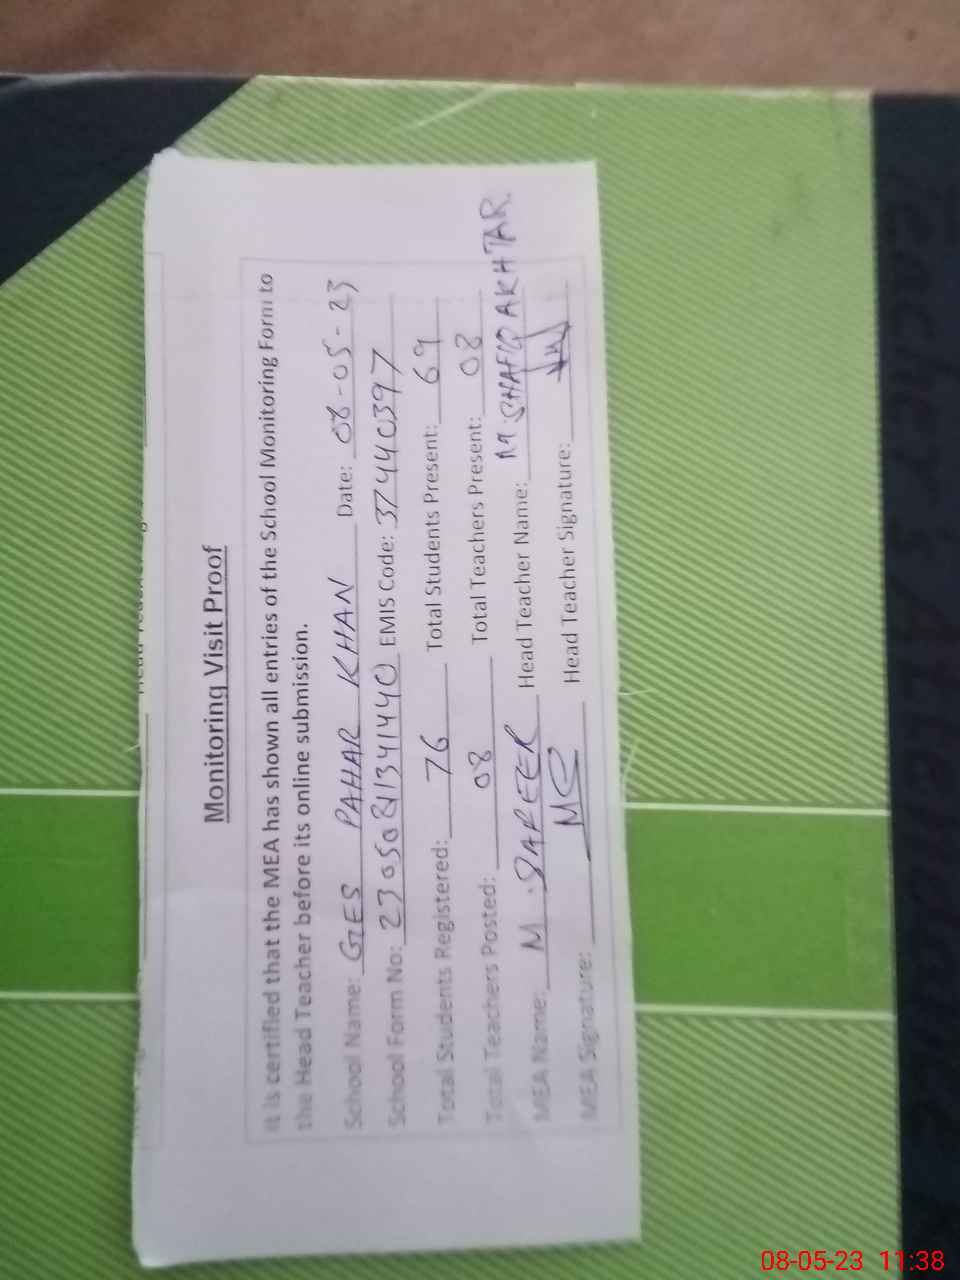 Monitoring Visit Proof
It is certified that the MEA has shown all entries of the School Monitoring Form to
the Head Teacher before its online submission.
School Name: GES PAHAR KHAN Date: 08-05-23
School Form No: EMIS Code: 37440397
Total Students Registered: 76 Total Students Present: 69
Total Teachers Posted: 08 Total Teachers Present: 08
MEA Name: M. SAFEER Head Teacher Name: M. SHAFIQ AKHTAR.
MEA Signature: MS Head Teacher Signature:
08-05-23 11:38